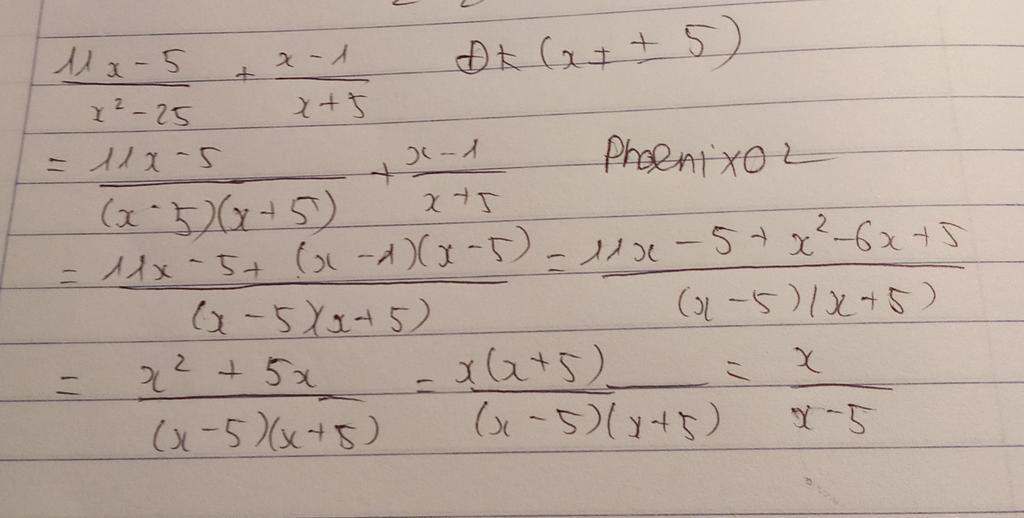 11x-5/x²-25 + x-1/x+5 Đk (x ≠ ± 5)
= 11x-5/(x-5)(x+5) + x-1/x+5 Phoenix02
= 11x-5+(x-1)(x-5)/(x-5)(x+5) = 11x-5+x²-6x+5/(x-5)(x+5)
= x²+5x/(x-5)(x+5) = x(x+5)/(x-5)(x+5) = x/x-5